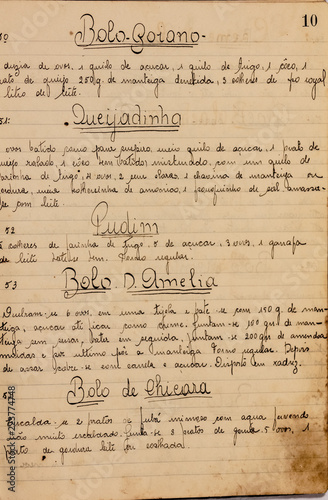 10
Bolo Goiano
duzia de ovos, 1 quilo de açucar, 1 quilo de trigo, 1 côco, 1
prato de queijo 250 g de manteiga derretida, 3 colheres de pó royal
litro de leite.
51.
Queijadinha
ovos batidos como para meio quilo de açucar, 1 prato de
queijo ralado, 1 côco bem batidos misturado, com um quilo de
farinha de trigo, 4 ovos, 2 sem claras, 1 chicara de manteiga ou
gordura, meia colherinha de amoniaco, 1 pouquinho de sal amassa-
se com leite.
52
Pudim
colheres de farinha de trigo, 5 de açucar, 3 ovos, 1 garrafa
de leite batese bem. Forno regular.
53
Bolo D. Amelia
6 ovos, em uma tijela e bate-se com 150 g. de man-
teiga, açucar até ficar como creme. Juntam-se 100 grs de man-
bate em seguida, juntam-se 200 grs de amendoas
e por ultimo põe a manteiga. Forno regular. Depois
de assar cobre-se com canela e açucar. em xadrez.
Bolo de Chicara
Escalda-se 2 pratos de fubá mimoso com agua fervendo
muito junta-se 3 pratos de goma 5 ovos, 1
prato de gordura leite ou coalhada.
Adobe Stock | #293774748